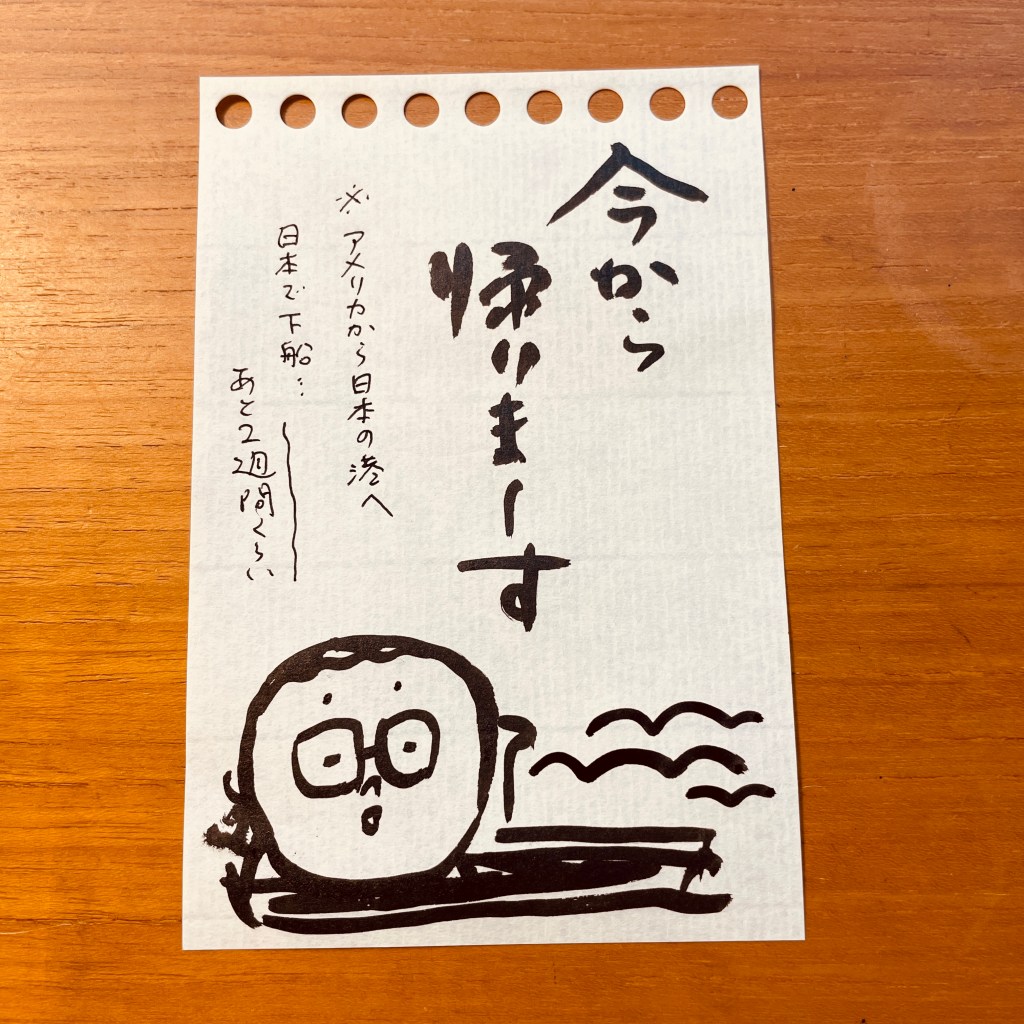 今から
帰りまーす
※アメリカから日本の港へ
日本で下船…
あと2週間くらい